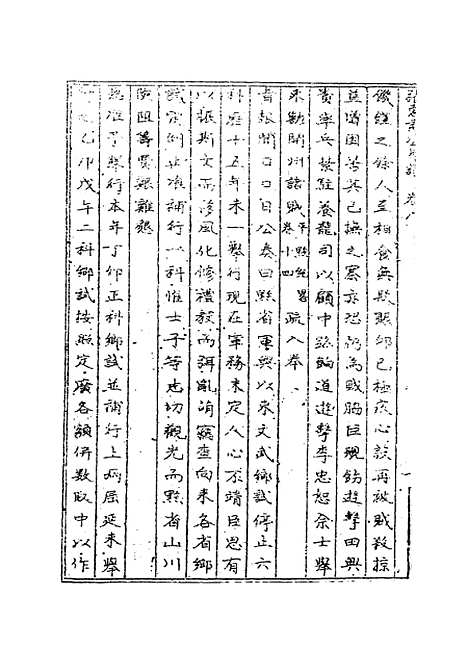 卷八
饑饉之餘人至相食無數張卯已極疾心設再被賊殺掠
益增困苦其已撫之寨亦恐仍為賊脇臣現飭遊擊田興
貴率兵紮駐養龍司以顧中路餉道遊擊李忠恕余士舉
未勦開州諸賊 卷十四 疏入奉
旨報聞口口日公奏曰黔省軍興以來文武鄉試停止六
科歷十五年未一舉行現在軍務未定人心不靖臣思有
以振斯文而移風化修禮教而弭亂萌竊查向來各省鄉
試常例止准補行一科惟士子等志切觀光而黔省山川
險阻籌費艱難懇
恩准予舉行本年丁卯正科鄉試並補行上兩屆延未舉
行之乙卯戊午二科鄉試按照定廣各額併數取中以作